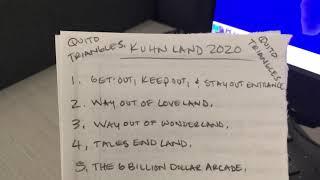 QUITO
TRIANGLES.
KUHN LAND 2020
QUITO
TRIANGLES.
1. GET-OUT, KEEP OUT, & STAY OUT ENTRANCE
2. WAY OUT OF LOVE LAND.
3. WAY OUT OF WONDERLAND.
4. TALES END LAND.
5. THE 6 BILLION DOLLAR ARCADE.